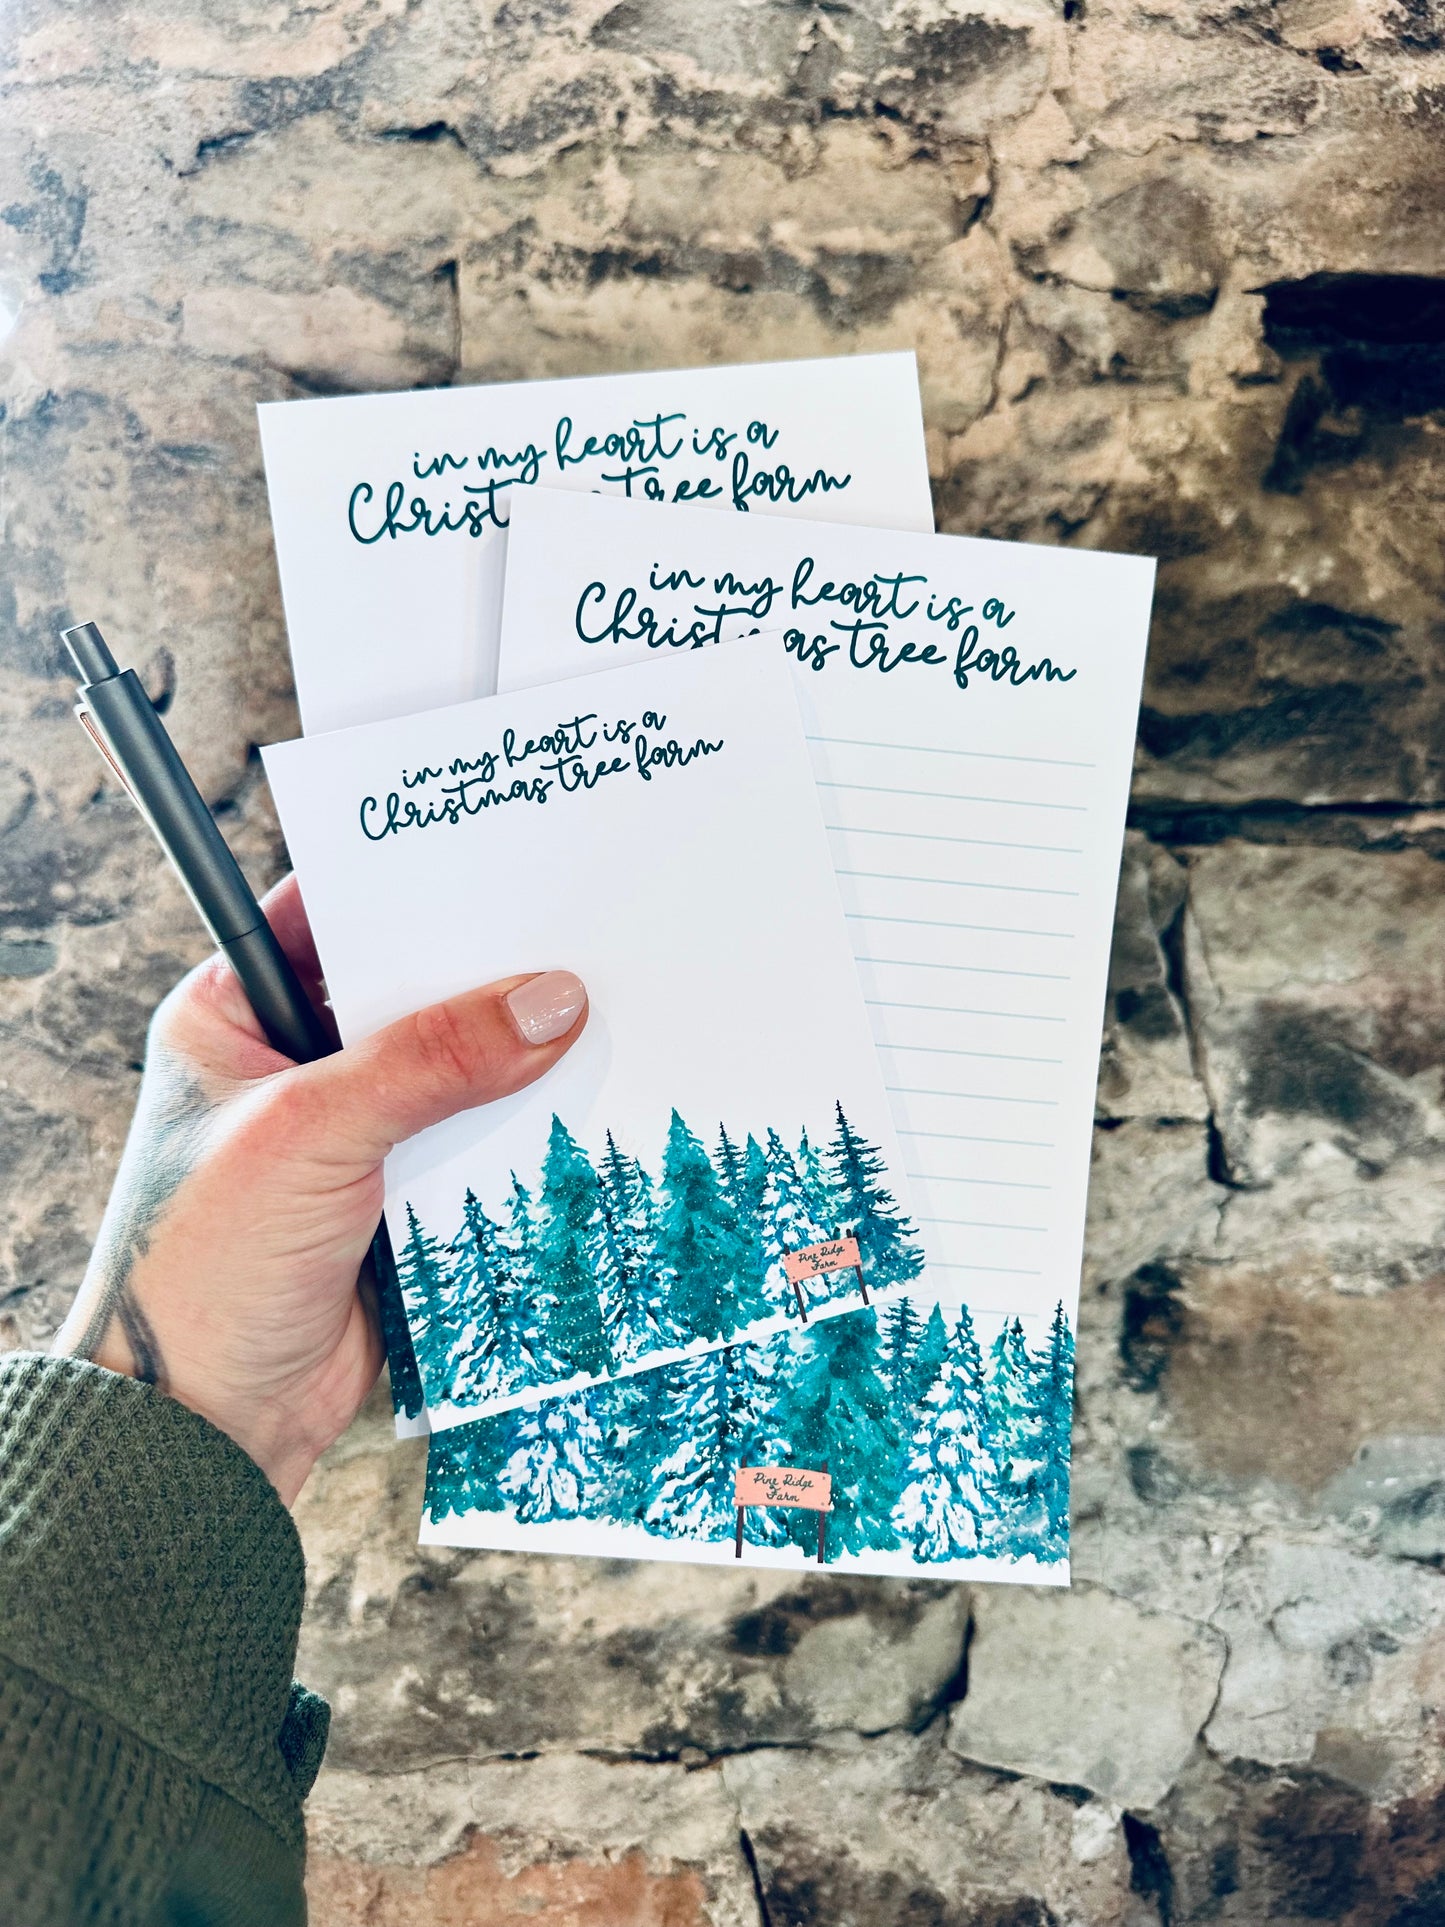 in my heart is a
Christ tree farm
in my heart is a
Christmas tree farm
in my heart is a
Christmas tree farm
Pine Ridge
Farm
Pine Ridge
Farm